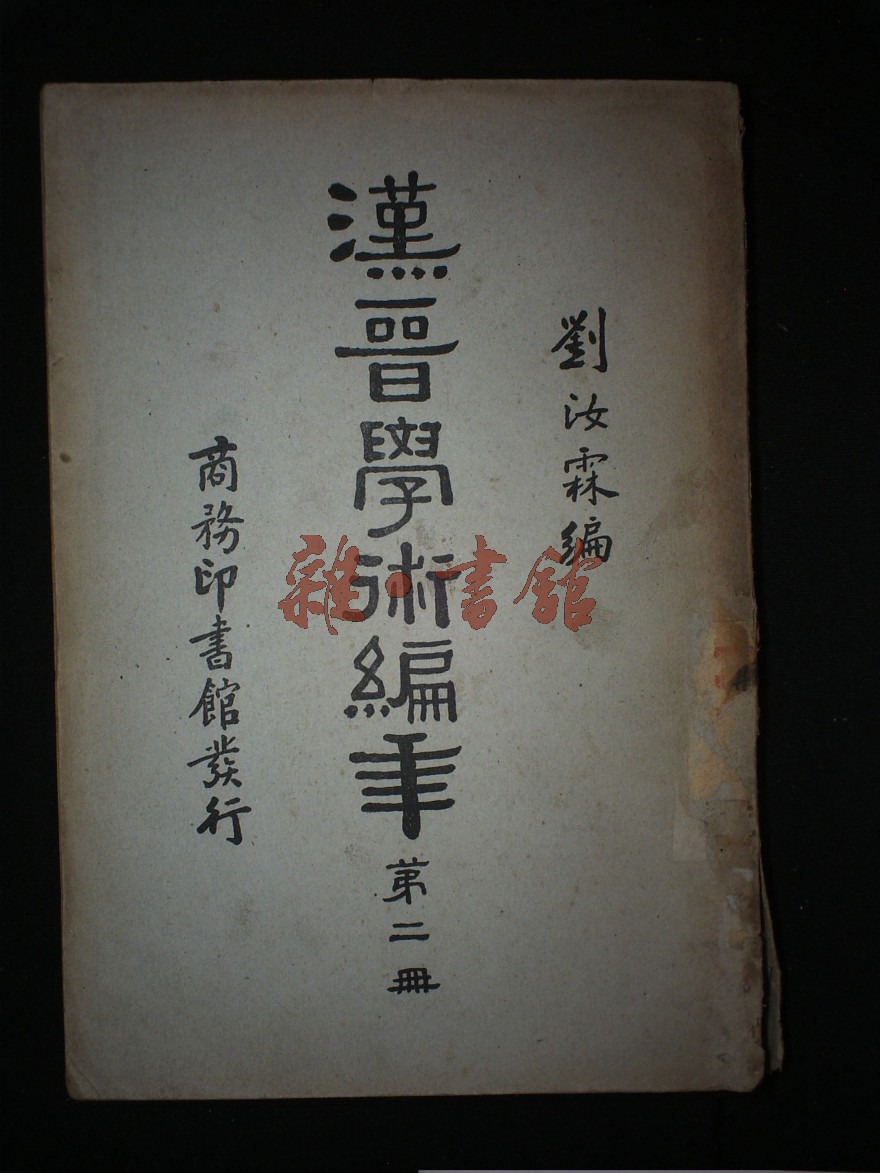 劉汝霖編
漢晉學術編年
第二冊
商務印書館發行
雜·書館